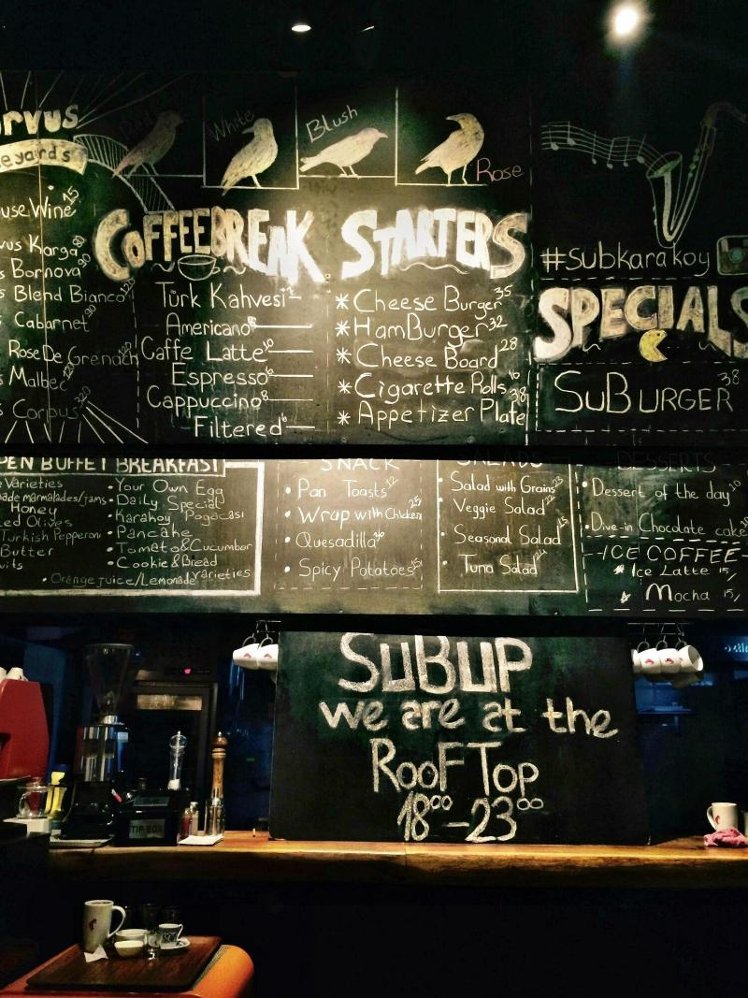 rvus
eyards
Red
White
Blush
Rose
use Wine 15
vus Karga
Bornova
s Blend Bianco
Cabarnet
s Rose De Grenach
s Malbec
s Corpus
COFFEEBREAK
Türk Kahvesi
Americano 8
Caffe Latte 10
Espresso 6
Cappuccino 8
Filtered 6
STARTERS
* Cheese Burger 35
* HamBurger 32
* Cheese Board 28
* Cigarette Rolls
* Appetizer Plate 38
#subkarakoy
SPECIALS
SuBURGER 38
PEN BUFFET BREAKFAST
e Varieties
ade marmalades/jams
Honey
ed Olives
Turkish Pepperoni
Butter
uits
• Your Own Egg
• Daily Special
• Karakoy Pogacasi
• Pancake
• Tomato & Cucumber
• Cookie & Bread
varieties
• Orange juice/Lemonade
SNACK
• Pan Toasts 12
• Wrap with Chicken 25
• Quesadilla
• Spicy Potatoes
SALADS
• Salad with Grains
• Veggie Salad
• Seasonal Salad
• Tuna Salad
DESSERTS
• Dessert of the day 10
• Dive-in Chocolate cake
-ICE COFFEE
* Ice Latte 15/
Mocha 15/
SuBUP
we are at the
RooFTop
18⁰⁰-23⁰⁰
TIP BOX